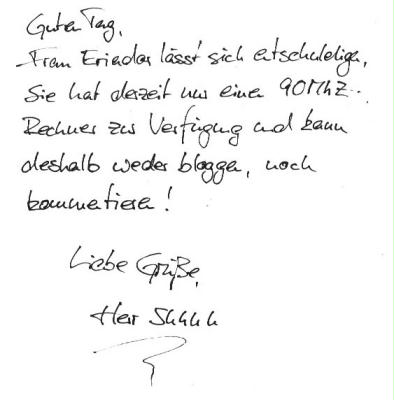 Guten Tag,
Frau Eriador lässt sich entschuldigen,
Sie hat derzeit nur einen 90MhZ..
Rechner zur Verfügung und kann
deshalb weder bloggen, noch
kommentieren!
Liebe Grüße,
Herr Shhhh